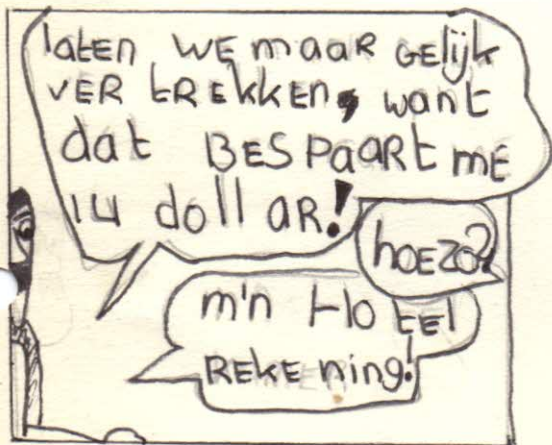 laten we maar gelijk
ver trekken, want
dat bespaart me
14 dollar!
hoezo?
m'n Hotel
rekening!